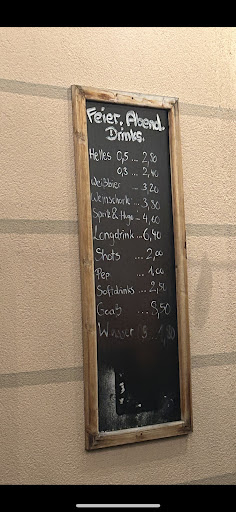 Feier. Abend.
Drinks.
Helles 0,5 ... 2,80
0,3 ... 2,40
Weißbier ... 3,20
Weinschorle ... 3,80
Spritz & Hugo ... 4,60
Longdrink ... 6,40
Shots ... 2,00
Pep ... 1,00
Softdrinks ... 2,50
Goaß ... 8,50
Wasser